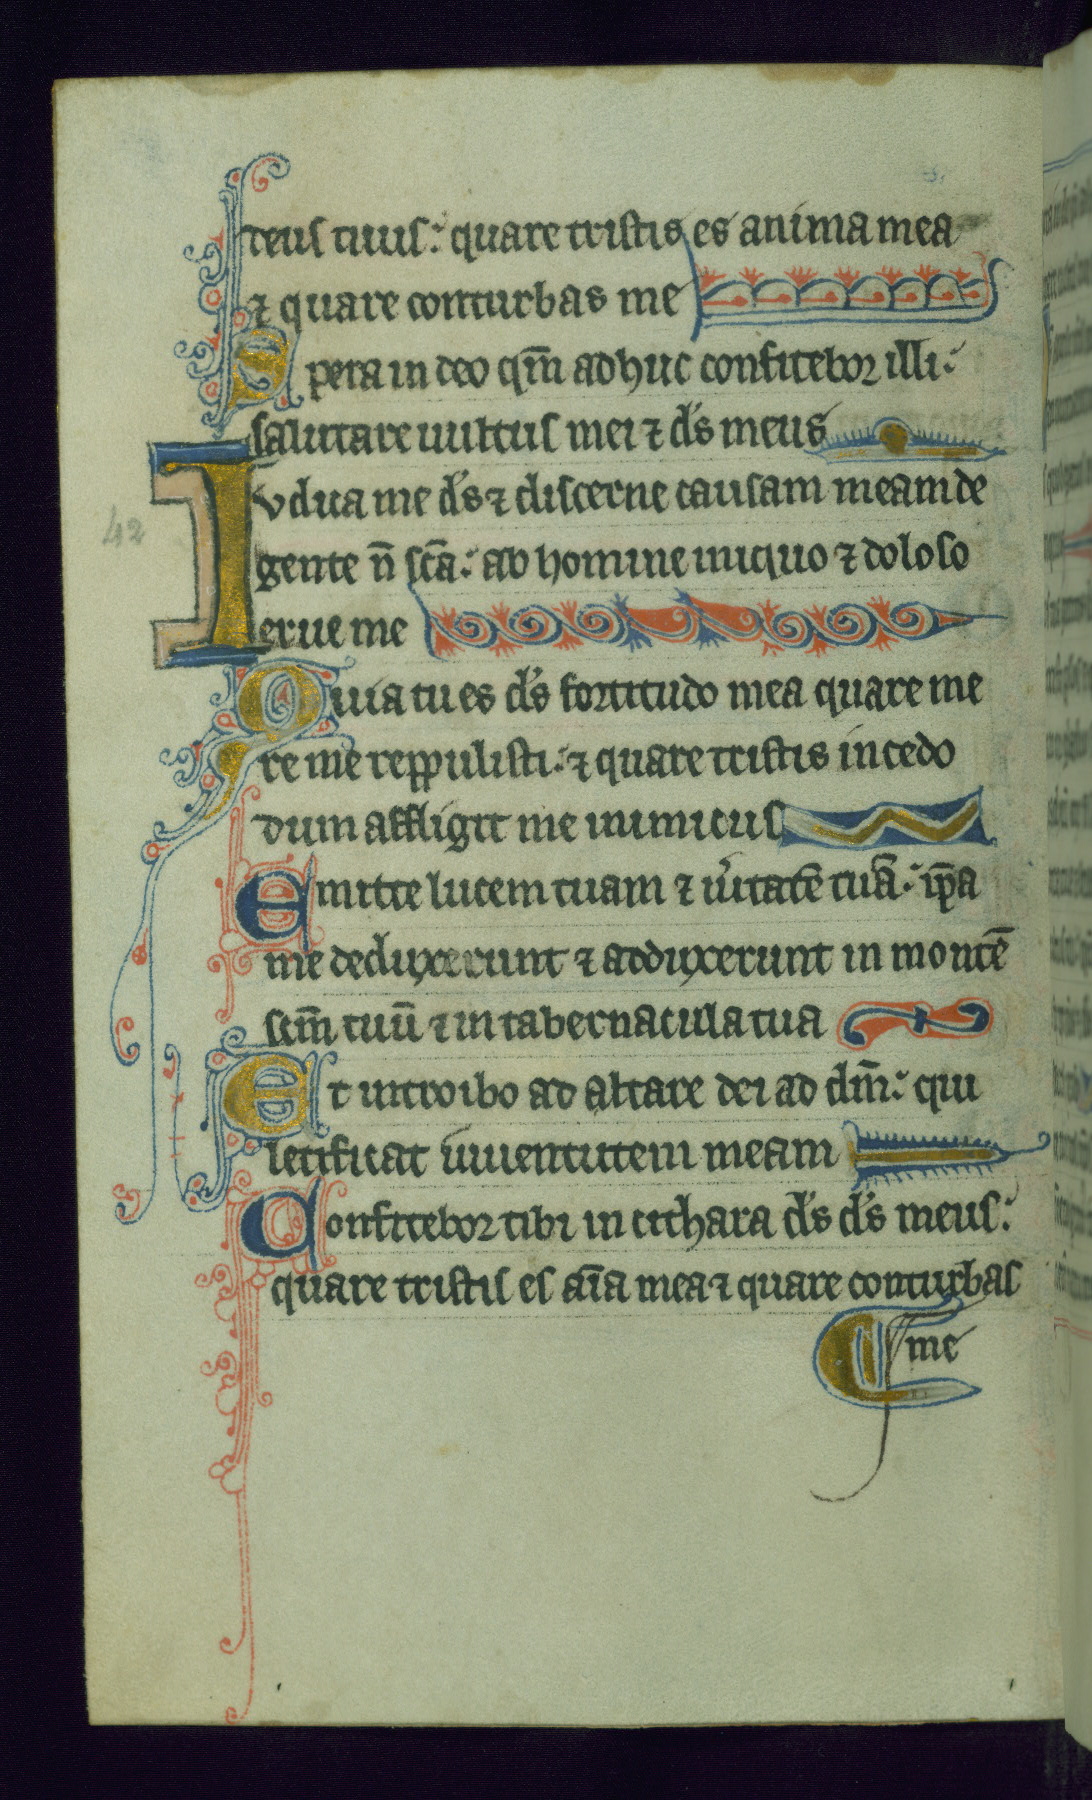 teus tuus: quare tristis es anima mea
⁊ quare conturbas me
Spera in deo qm̄ adhuc confitebor illi:
salutare uultus mei ⁊ d's meus
Iudica me d's ⁊ discerne causam meam de
42
gente n̄ sc̄a: ab homine iniquo ⁊ doloso
erue me
Quia tu es d's fortitudo mea quare me
re me reppulisti: ⁊ quare tristis incedo
dum affligit me inimicus
Emitte lucem tuam ⁊ u'itatē tuā: ip̄a
me deduxerunt ⁊ adduxerunt in montē
scm̄ tuū ⁊ in tabernacula tua
Et introibo ad altare dei ad dm̄: qui
letificat iuuentutem meam
Confitebor tibi in cithara d's d's meus:
quare tristis es aīa mea ⁊ quare conturbas
me